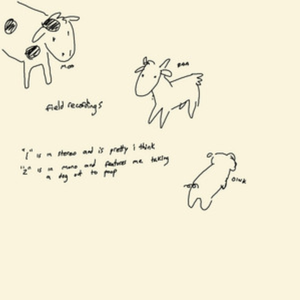 moo
baa
field recordings
"1" is in stereo and is pretty i think
"2" is in mono and features me taking
a dog out to poop
oink